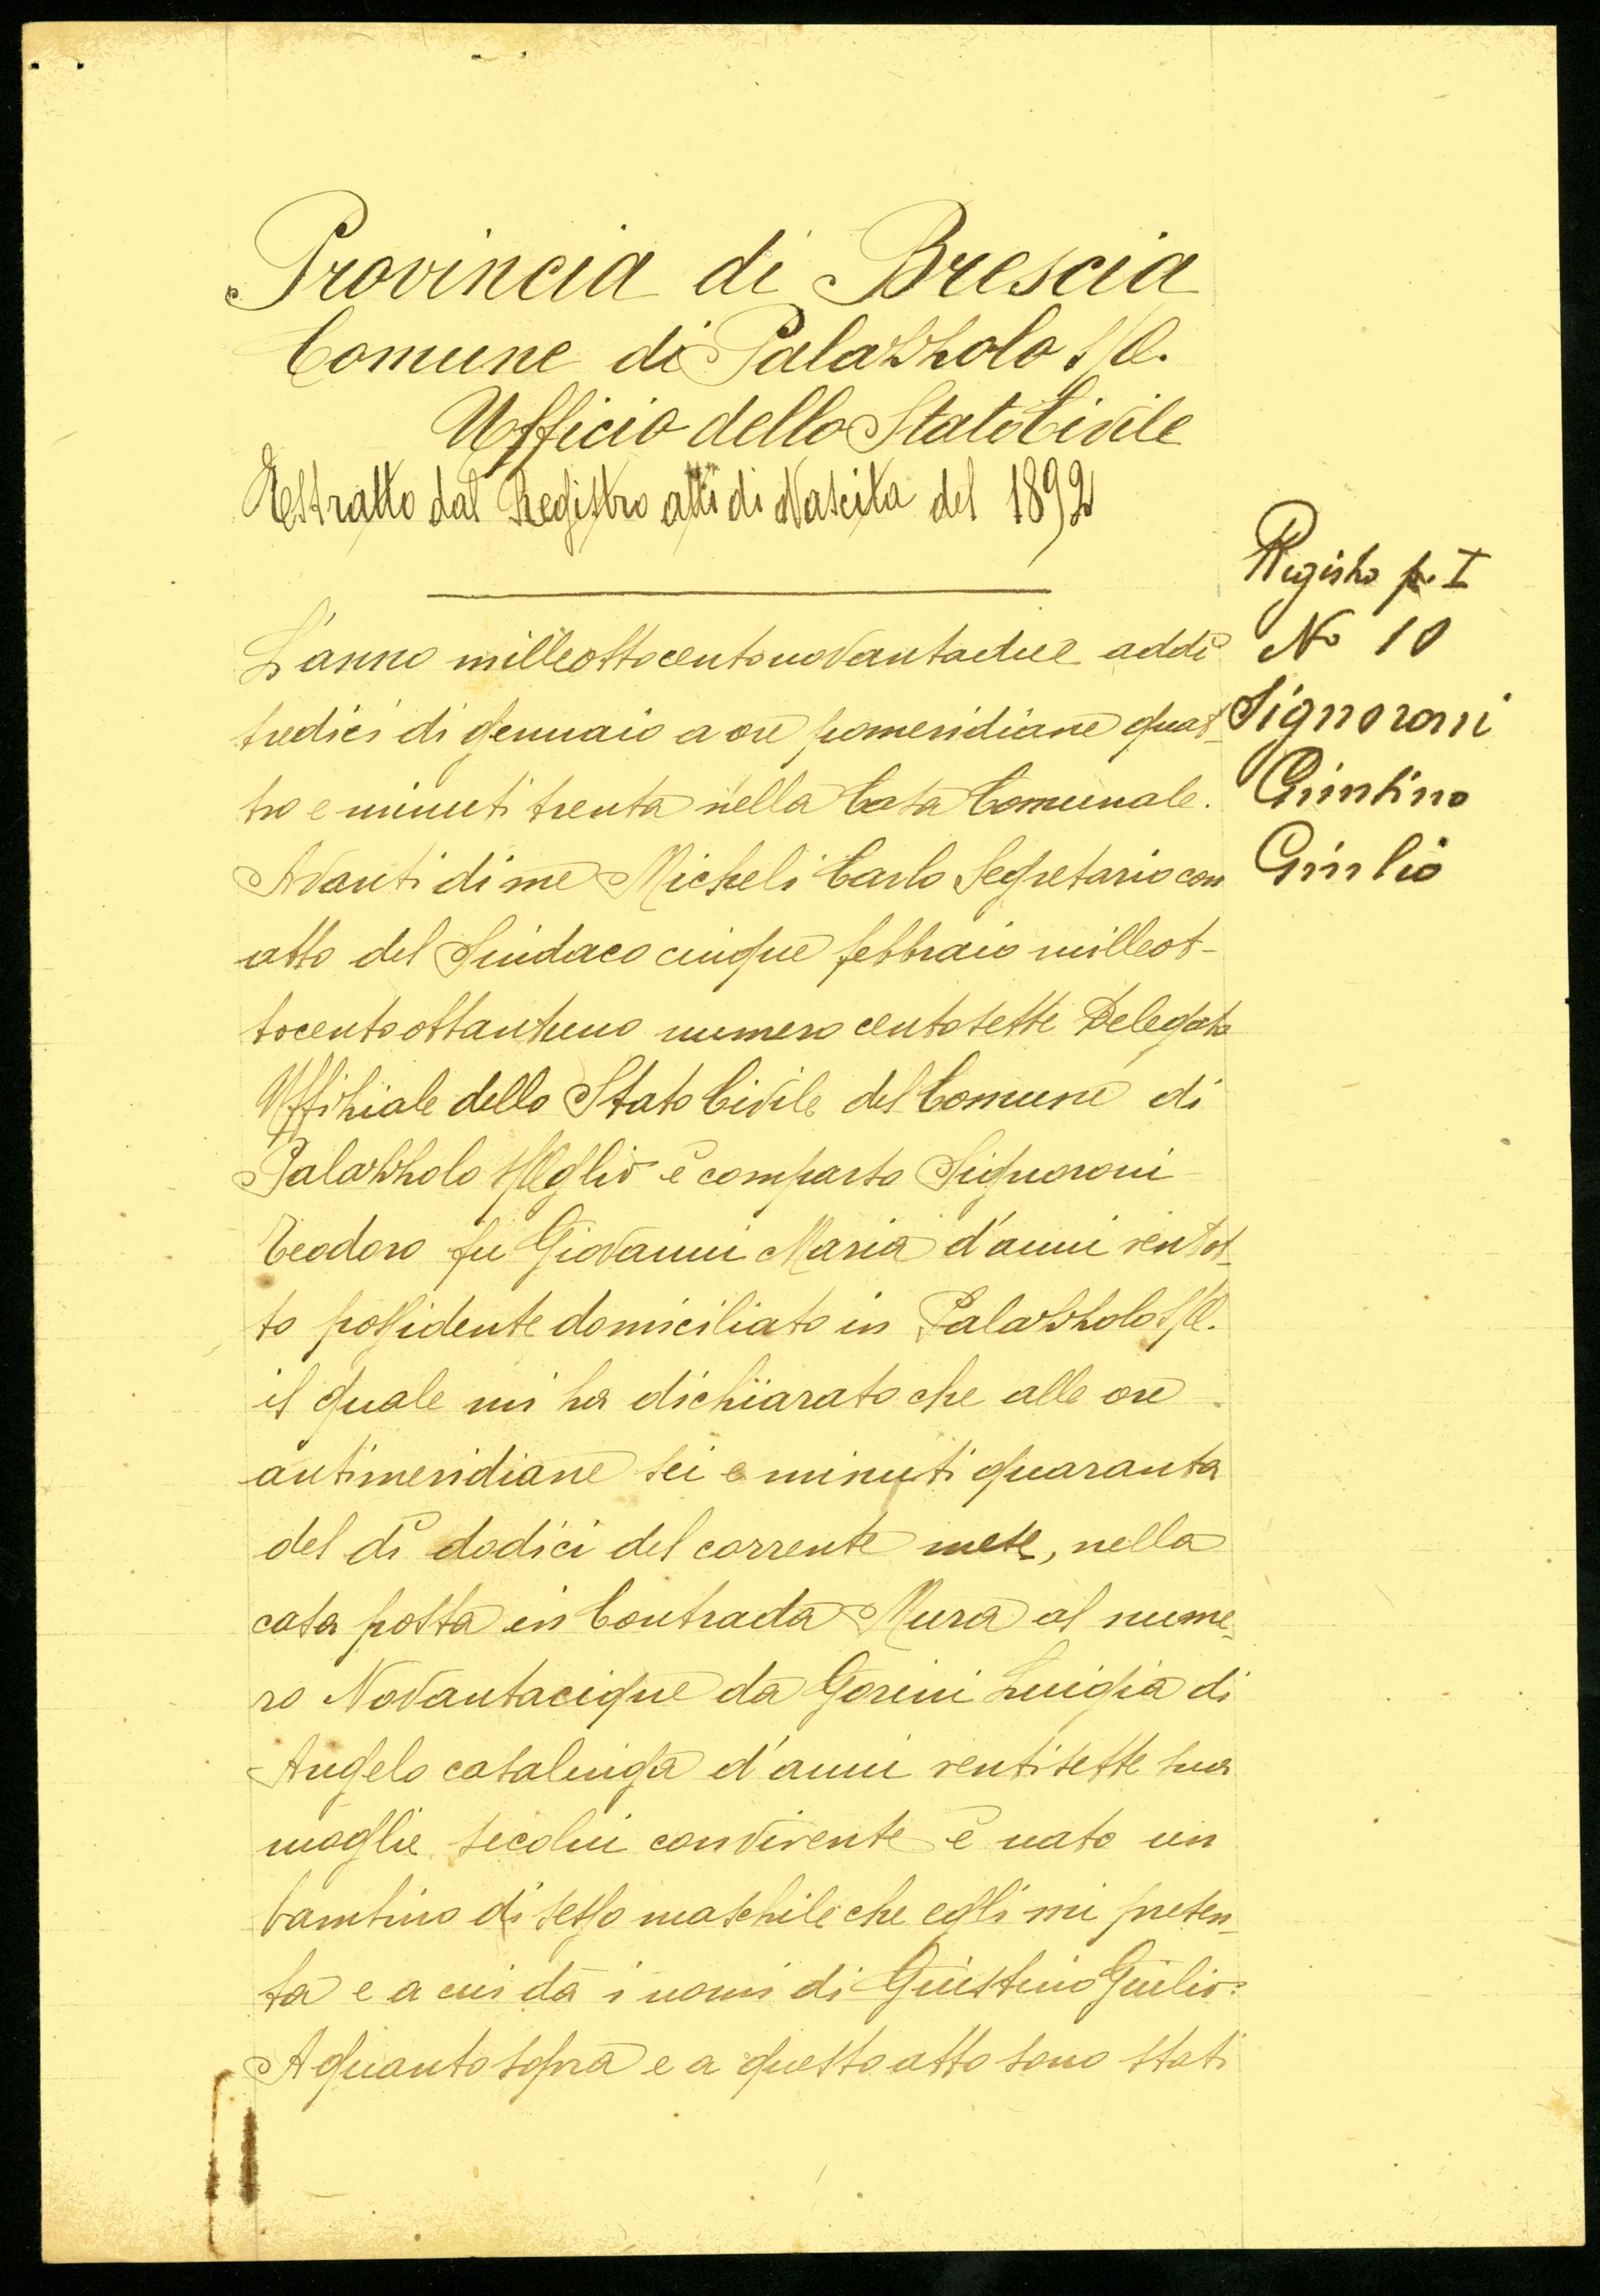 Provincia di Brescia
Comune di Palazzolo s/O.
Ufficio dello Stato Civile
Estratto dal Registro atti di Nascita del 1892
Registro p. I
No 10
Signoroni
Giustino
Giulio
L'anno milleottocentonovantadue addì
tredici di gennaio a ore pomeridiane quat-
tro e minuti trenta nella Casa Comunale.
Avanti di me Micheli Carlo Segretario con
atto del Sindaco cinque febbraio milleot-
tocentottantuno numero centosette Delegato
Uffiziale dello Stato Civile del Comune di
Palazzolo s/Oglio è comparso Signoroni
Teodoro fu Giovanni Maria d'anni ventot-
to possidente domiciliato in Palazzolo s/O.
il quale mi ha dichiarato che alle ore
antimeridiane sei e minuti quaranta
del dì dodici del corrente mese, nella
casa posta in Contrada Mura al nume-
ro Novantacique da Gorini Luigia di
Angelo casalinga d'anni ventisette sua
moglie secolui convivente è nato un
bambino di sesso maschile che egli mi presen-
ta e a cui dà i nomi di Giustino Giulio:
A quanto sopra e a questo atto sono stati